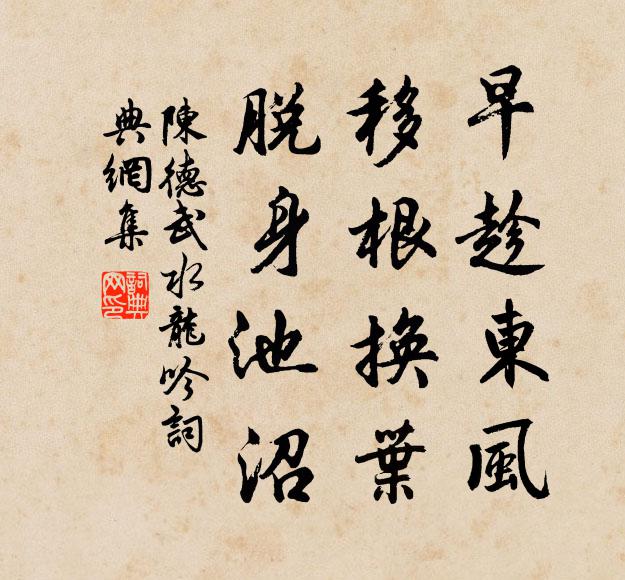 早趁東風
移根換葉
脫身池沼
陳德武水龍吟詞
典網集
詞典网印